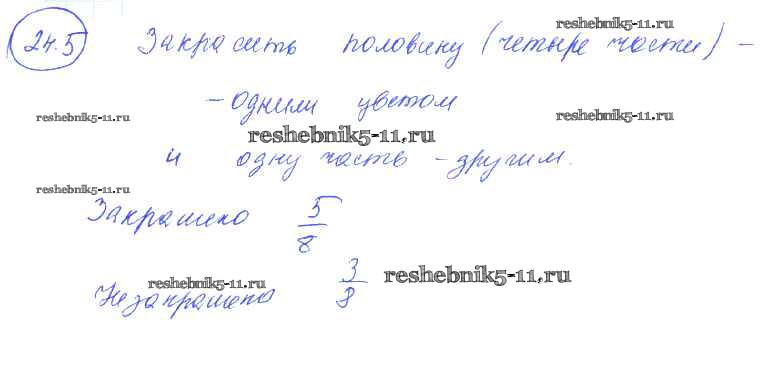 reshebnik5-11.ru
24.5 Закрасить половину (четыре части) -
reshebnik5-11.ru reshebnik5-11.ru
- одним цветом
reshebnik5-11.ru
и одну часть - другим.
reshebnik5-11.ru
Закрашено 5/8
reshebnik5-11.ru reshebnik5-11.ru
Незакрашено 3/8